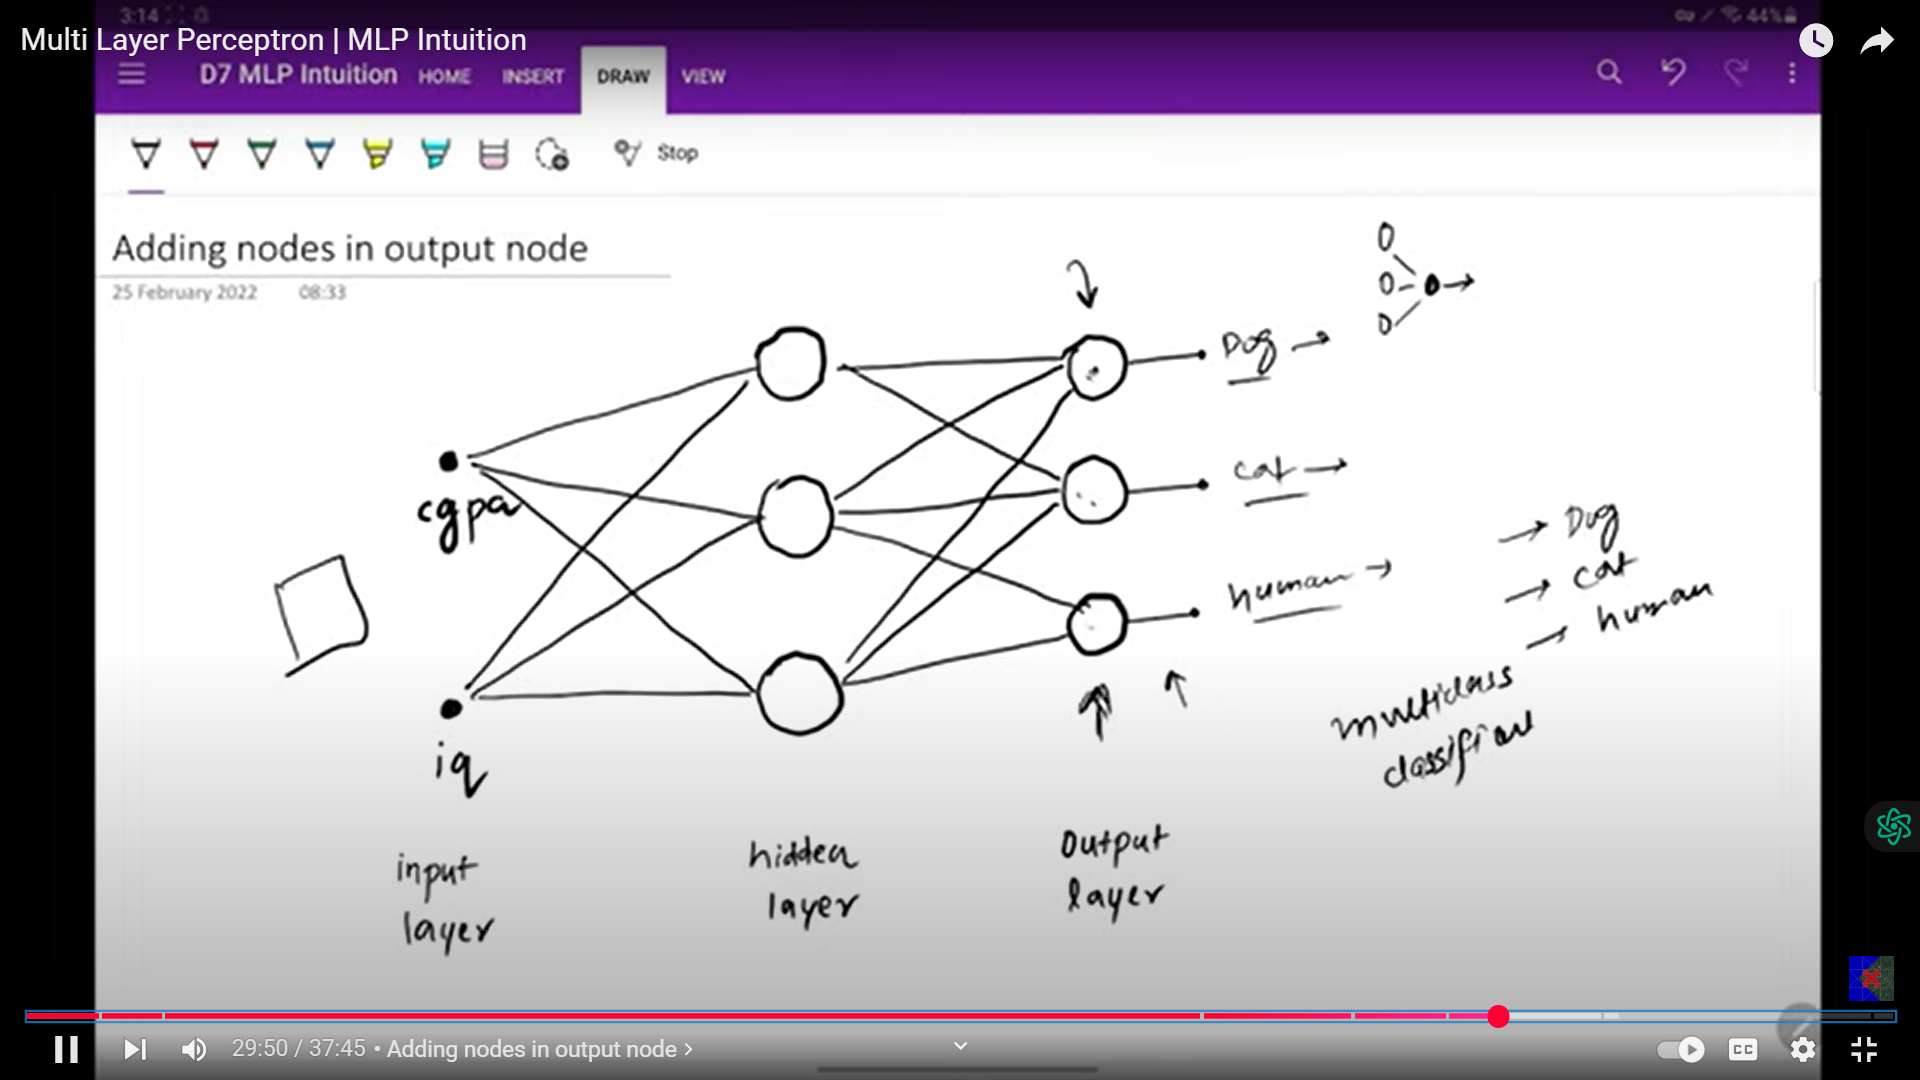 3:14 44%
Multi Layer Perceptron | MLP Intuition
D7 MLP Intuition HOME INSERT DRAW VIEW
Stop
Adding nodes in output node
25 February 2022 08:33
Dog
cat
human
cgpa
iq
Dog
cat
human
multiclass
input
layer
hidden
layer
output
layer
29:50 / 37:45 • Adding nodes in output node >
CC